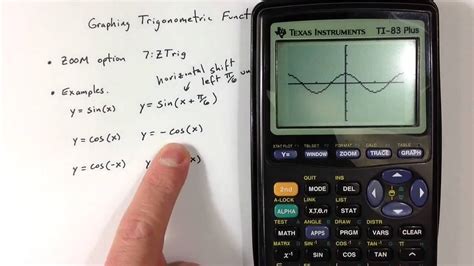 Graphing Trigonometric Funct
• ZOOM option 7:ZTrig
horizontal shift
left π/6 un
• Examples.
y = sin(x) y = sin(x + π/6)
y = cos(x) y = -cos(x)
y = cos(-x) y x)
TEXAS INSTRUMENTS TI-83 Plus
STAT PLOT TBLSET FORMAT CALC TABLE
Y= WINDOW ZOOM TRACE GRAPH
QUIT INS
2nd MODE DEL
A-LOCK LINK LIST
ALPHA X,T,θ,n STAT
TEST ANGLE DRAW DISTR
MATH APPS PRGM VARS CLEAR
MATRX SIN⁻¹ COS⁻¹ TAN⁻¹ π
x⁻¹ SIN COS TAN ^